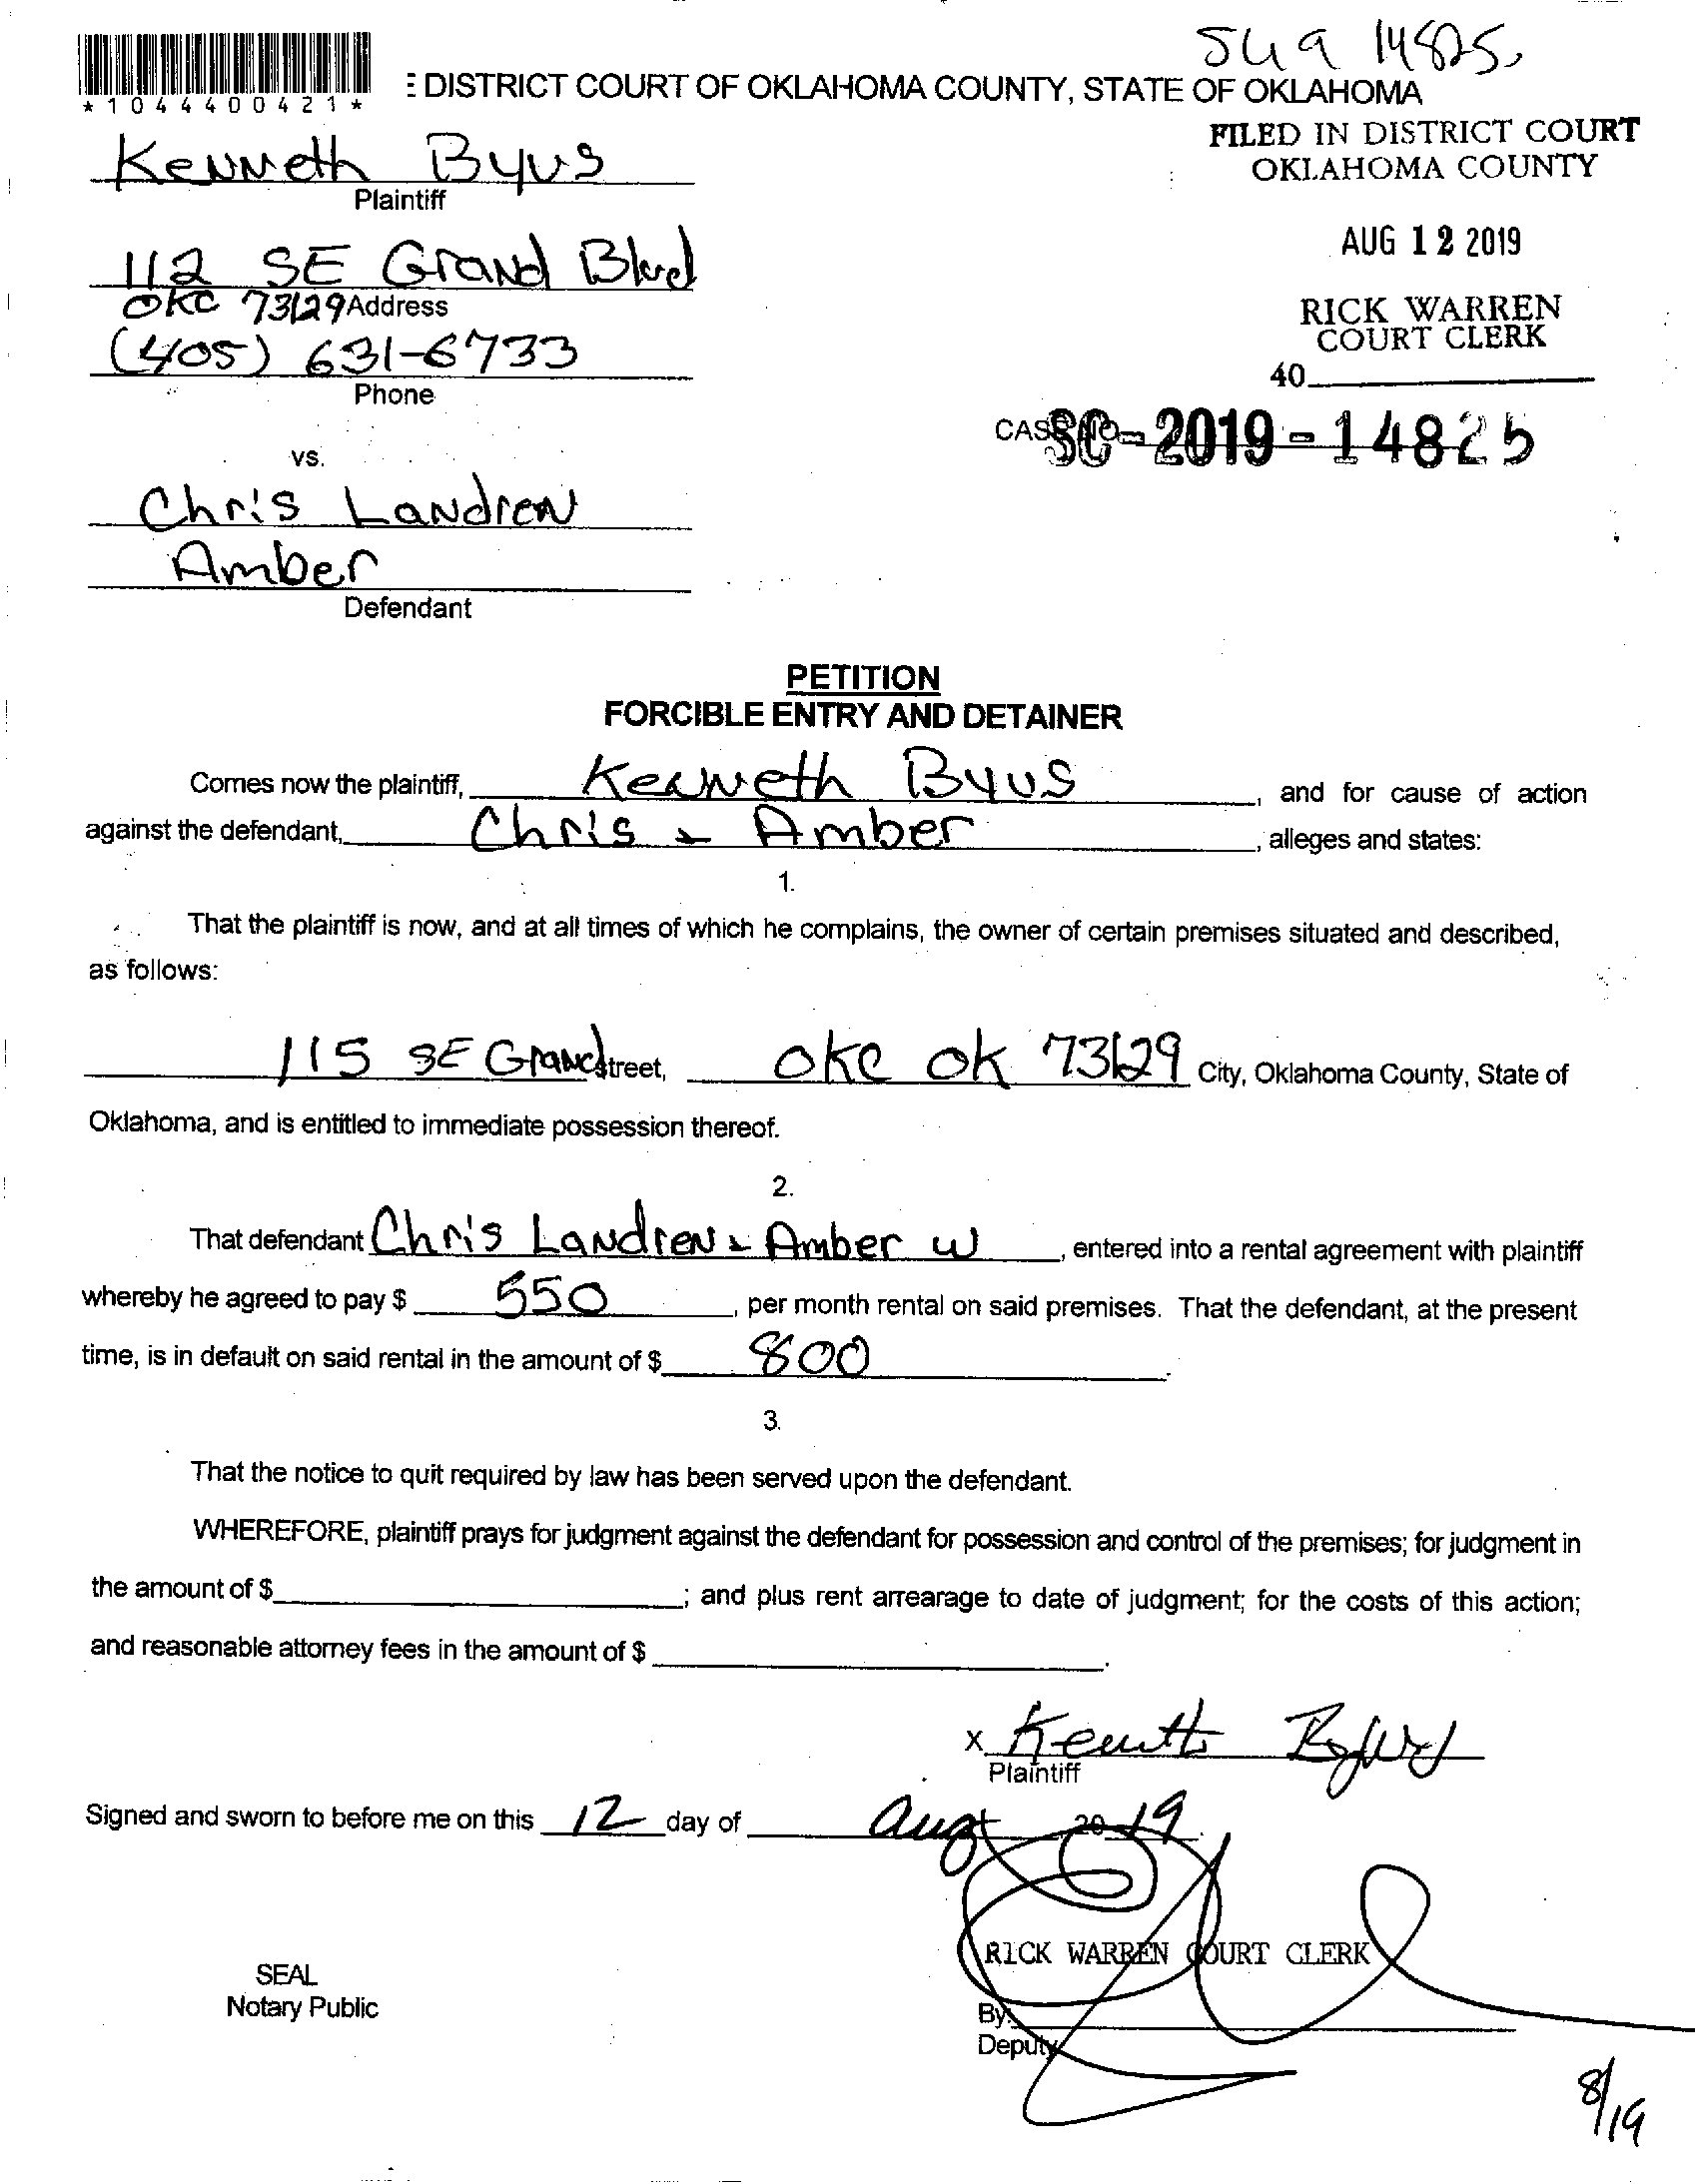 SC 19 14825
*1044400421*
E DISTRICT COURT OF OKLAHOMA COUNTY, STATE OF OKLAHOMA
FILED IN DISTRICT COURT
OKLAHOMA COUNTY
Kenneth Byus
Plaintiff
AUG 12 2019
112 SE Grand Blvd
OKC 73129 Address
RICK WARREN
COURT CLERK
(405) 631-6733
40
Phone
CASE NO. SC-2019-14825
vs.
Chris Landren
Amber
Defendant
PETITION
FORCIBLE ENTRY AND DETAINER
Comes now the plaintiff, Kenneth Byus, and for cause of action
against the defendant, Chris & Amber, alleges and states:
1.
That the plaintiff is now, and at all times of which he complains, the owner of certain premises situated and described,
as follows:
115 SE Grand Street, OKC OK 73129 City, Oklahoma County, State of
Oklahoma, and is entitled to immediate possession thereof.
2.
That defendant Chris Landren & Amber W, entered into a rental agreement with plaintiff
whereby he agreed to pay $ 550, per month rental on said premises. That the defendant, at the present
time, is in default on said rental in the amount of $ 800.
3.
That the notice to quit required by law has been served upon the defendant.
WHEREFORE, plaintiff prays for judgment against the defendant for possession and control of the premises; for judgment in
the amount of $ ; and plus rent arrearage to date of judgment; for the costs of this action;
and reasonable attorney fees in the amount of $ .
x Kenneth Byus
Plaintiff
Signed and sworn to before me on this 12 day of Aug 20 19
RICK WARREN COURT CLERK
SEAL
Notary Public
By:
Deputy
8/19